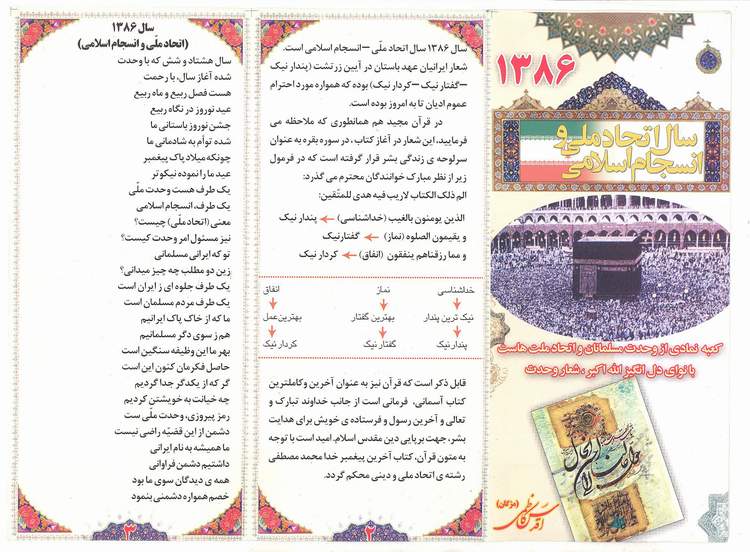 ۱۳۸۶
سال اتحاد ملی و
انسجام اسلامی
کعبه نمادی از وحدت مسلمانان و اتحاد ملت هاست
با نوای دل انگیز الله اکبر، شعار وحدت
(مژگان)
سال ۱۳۸۶ سال اتحاد ملّی – انسجام اسلامی است.
شعار ایرانیان عهد باستان در آیین زرتشت (پندار نیک
– گفتار نیک – کردار نیک) بوده که همواره مورد احترام
عموم ادیان تا به امروز بوده است.
در قرآن مجید هم همانطوری که ملاحظه می
فرمایید، این شعار در آغاز کتاب، در سوره بقره به عنوان
سرلوحه ی زندگی بشر قرار گرفته است که در فرمول
زیر از نظر مبارک خوانندگان محترم می گذرد:
الم ذلک الکتاب لاریب فیه هدی للمتّقین:
الذین یومنون بالغیب (خداشناسی) ← پندار نیک
و یقیمون الصلوه (نماز) ← گفتارنیک
و مما رزقناهم ینفقون (انفاق) ← کردار نیک
خداشناسی نماز انفاق
نیک ترین پندار بهترین گفتار بهترین‌عمل
پندار نیک گفتار نیک کردار نیک
قابل ذکر است که قرآن نیز به عنوان آخرین و کاملترین
کتاب آسمانی، فرمانی است از جانب خداوند تبارک و
تعالی و آخرین رسول و فرستاده ی خویش برای هدایت
بشر، جهت برپایی دین مقدس اسلام. امید است با توجه
به متون قرآن، کتاب آخرین پیغمبر خدا محمد مصطفی
رشته ی اتحاد ملی و دینی محکم گردد.
۲
سال ۱۳۸۶
(اتحاد ملّی و انسجام اسلامی)
سال هشتاد و شش که با وحدت
شده آغاز سال، با رحمت
هست فصل ربیع و ماه ربیع
عید نوروز در نگاه ربیع
جشن نوروز باستانی ما
شده توأم به شادمانی ما
چونکه میلاد پاک پیغمبر
عید ما را نموده نیکوتر
یک طرف هست وحدت ملّی
یک طرف، انسجام اسلامی
معنی (اتحاد ملّی) چیست؟
نیز مسئول امر وحدت کیست؟
تو که ایرانی مسلمانی
زین دو مطلب چه چیز میدانی؟
یک طرف جلوه ای ز ایران است
یک طرف مردم مسلمان است
ما که از خاک پاک ایرانیم
هم ز سوی دگر مسلمانیم
بهر ما این وظیفه سنگین است
حاصل فکرمان کنون این است
گر که از یکدگر جدا گردیم
چه خیانت به خویشتن کردیم
رمز پیروزی، وحدت ملّی ست
دشمن از این قضیّه راضی نیست
ما همیشه به نام ایرانی
داشتیم دشمن فراوانی
همه ی دیدگان سوی ما بود
خصم همواره دشمنی بنمود
۳